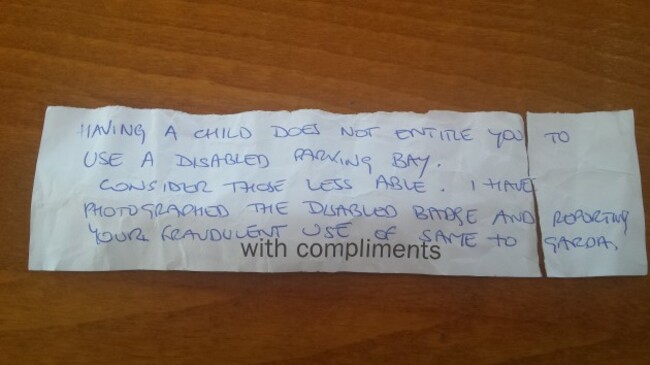 HAVING A CHILD DOES NOT ENTITLE YOU TO
USE A DISABLED PARKING BAY.
CONSIDER THOSE LESS ABLE. I HAVE
PHOTOGRAPHED THE DISABLED BADGE AND REPORTING
YOUR FRAUDULENT USE OF SAME TO GARDAI
with compliments